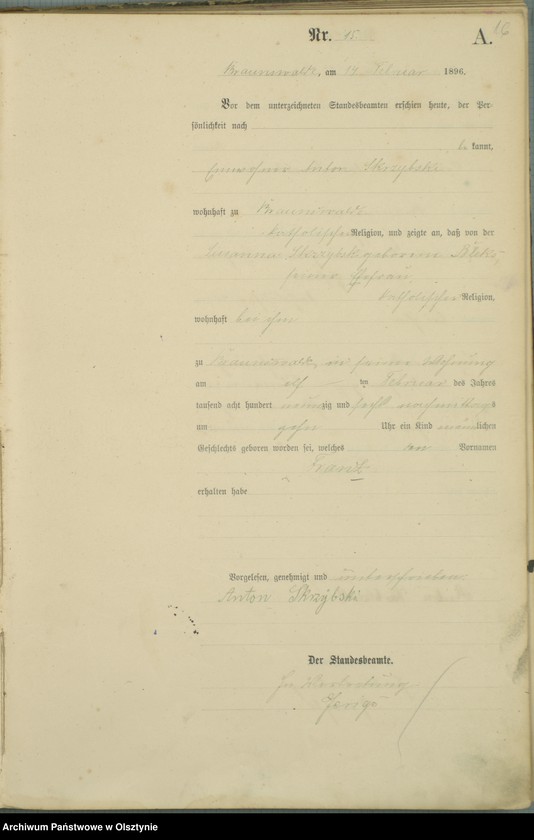 Nr. 15
A. 16
Braunswalde, am 19 Februar 1896.
Vor dem unterzeichneten Standesbeamten erschien heute, der Per-
sönlichkeit nach
be kannt,
Einwohner Anton Skrzybski
wohnhaft zu Braunswalde
katholischer Religion, und zeigte an, daß von der
Susanna Skrzybski geborenen
seiner Ehefrau
katholischer Religion,
wohnhaft bei ihm
zu Braunswalde, in seiner Wohnung
am elf ten Februar des Jahres
tausend acht hundert neunzig und sechs nachmittags
um zehn Uhr ein Kind männlichen
Geschlechts geboren worden sei, welches en Vornamen
Franz
erhalten habe
Vorgelesen, genehmigt und unterschrieben.
Anton Skrzybski
Der Standesbeamte.
In Vertretung
Archiwum Państwowe w Olsztynie